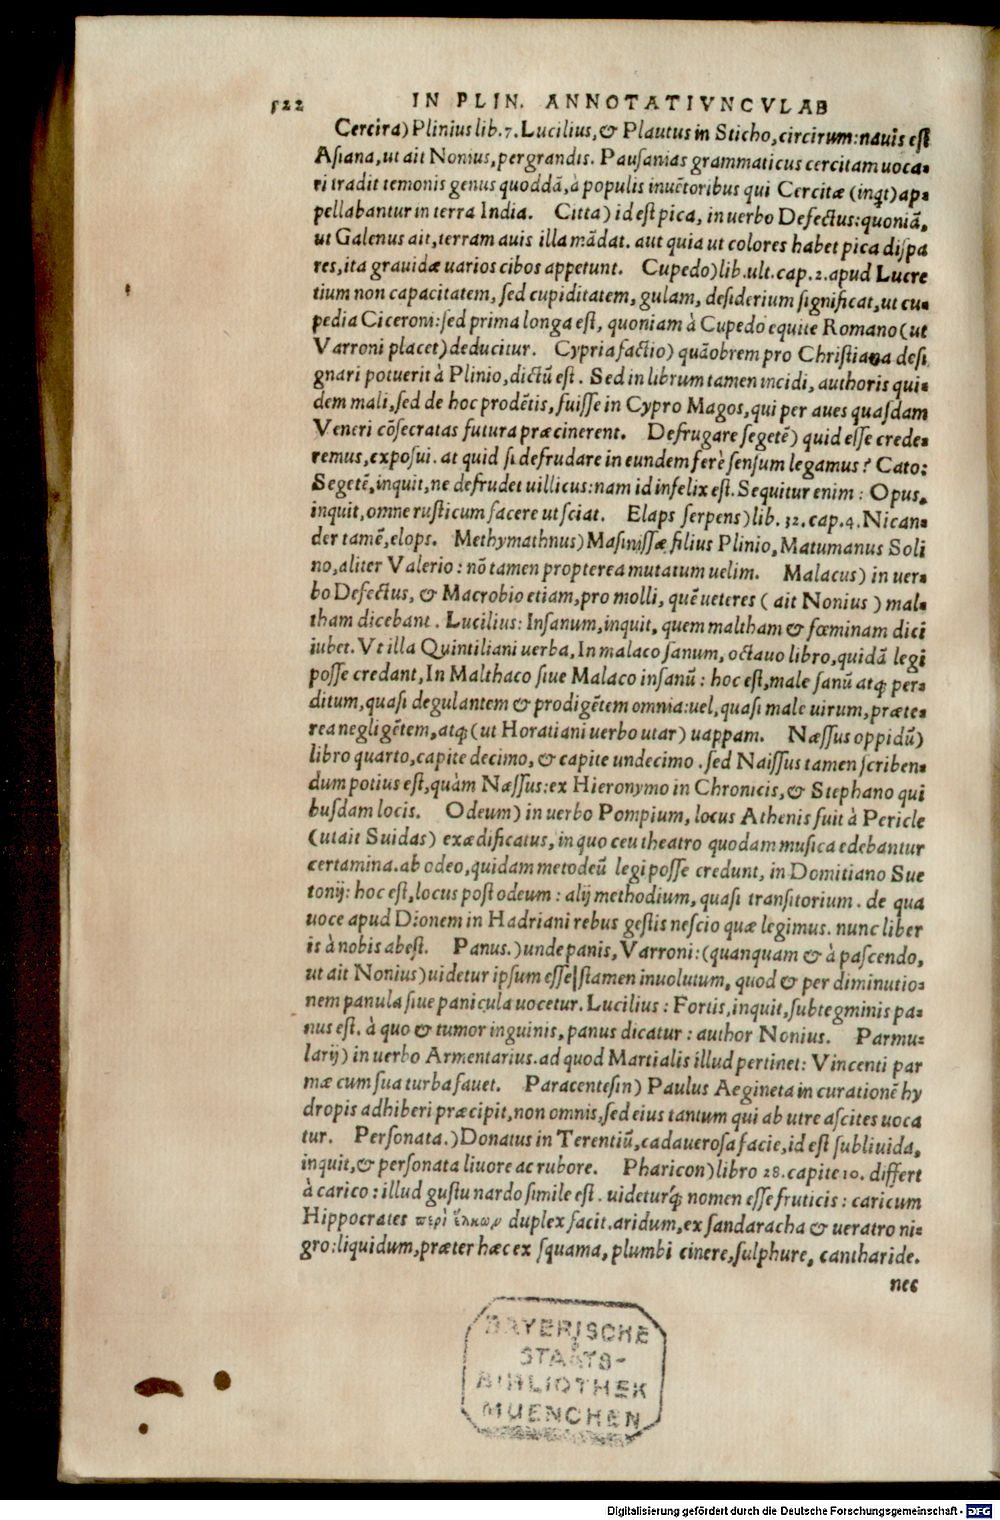 522 IN PLIN. ANNOTATIVNCVLAE
Cercira) Plinius lib.7. Lucilius, & Plautus in Sticho, circirum: nauis est
Asiana, ut ait Nonius, pergrandis. Pausanias grammaticus cercitam uoca-
ri tradit temonis genus quoddā, à populis inuētoribus qui Cercitæ (inqt) ap-
pellabantur in terra India. Citta) id est pica, in uerbo Defectus: quoniā,
ut Galenus ait, terram auis illa mādat. aut quia ut colores habet pica dispa
res, ita grauidæ uarios cibos appetunt. Cupedo) lib. ult. cap. 2. apud Lucre
tium non capacitatem, sed cupiditatem, gulam, desiderium significat, ut cu-
pedia Ciceroni: sed prima longa est, quoniam à Cupedo equite Romano (ut
Varroni placet) deducitur. Cypria factio) quāobrem pro Christiana desi
gnari potuerit à Plinio, dictū est. Sed in librum tamen incidi, authoris qui-
dem mali, sed de hoc prodētis, fuisse in Cypro Magos, qui per aues quasdam
Veneri cōsecratas futura præcinerent. Defrugare segetē) quid esse crede-
remus, exposui. at quid si defrudare in eundem ferè sensum legamus? Cato:
Segetē, inquit, ne defrudet uillicus: nam id infelix est. Sequitur enim: Opus,
inquit, omne rusticum facere ut sciat. Elaps serpens) lib. 32. cap. 4. Nican-
der tamē, elops. Methymathnus) Masinissæ filius Plinio, Matumanus Soli
no, aliter Valerio: nō tamen propterea mutatum uelim. Malacus) in uer-
bo Defectus, & Macrobio etiam, pro molli, quē ueteres ( ait Nonius ) mal-
tham dicebant. Lucilius: Insanum, inquit, quem maltham & fœminam dici
iubet. Vt illa Quintiliani uerba, In malaco sanum, octauo libro, quidā legi
posse credant, In Malthaco siue Malaco insanū: hoc est, male sanū atq; per-
ditum, quasi degulantem & prodigētem omnia: uel, quasi male uirum, præte-
rea negligētem, atq; (ut Horatiani uerbo utar) uappam. Næssus oppidū)
libro quarto, capite decimo, & capite undecimo. sed Naissus tamen scriben-
dum potius est, quàm Næssus: ex Hieronymo in Chronicis, & Stephano qui
busdam locis. Odeum) in uerbo Pompium, locus Athenis fuit à Pericle
(utait Suidas) exædificatus, in quo ceu theatro quodam musica edebantur
certamina. ab odeo, quidam metodeū legi posse credunt, in Domitiano Sue
tonij: hoc est, locus post odeum: alij methodium, quasi transitorium. de qua
uoce apud Dionem in Hadriani rebus gestis nescio quæ legimus. nunc liber
is à nobis abest. Panus.) unde panis, Varroni: (quanquam & à pascendo,
ut ait Nonius) uidetur ipsum esse stamen inuolutum, quod & per diminutio-
nem panula siue panicula uocetur. Lucilius: Fortis, inquit, subtegminis pa-
nus est. à quo & tumor inguinis, panus dicatur: author Nonius. Parmu-
larij) in uerbo Armentarius. ad quod Martialis illud pertinet: Vincenti par
mæ cum sua turba fauet. Paracentesin) Paulus Aegineta in curationē hy
dropis adhiberi præcipit, non omnis, sed eius tantum qui ab utre ascites uoca
tur. Personata.) Donatus in Terentiū, cadauerosa facie, id est subliuida,
inquit, & personata liuore ac rubore. Pharicon) libro 28. capite 10. differt
à carico: illud gustu nardo simile est. uideturq; nomen esse fruticis: caricum
Hippocrates περὶ ἕλκων duplex facit. aridum, ex sandaracha & ueratro ni-
gro: liquidum, præter hæc ex squama, plumbi cinere, sulphure, cantharide.
nec
BAYERISCHE
STAATS-
BIBLIOTHEK
MUENCHEN
Digitalisierung gefördert durch die Deutsche Forschungsgemeinschaft - DFG